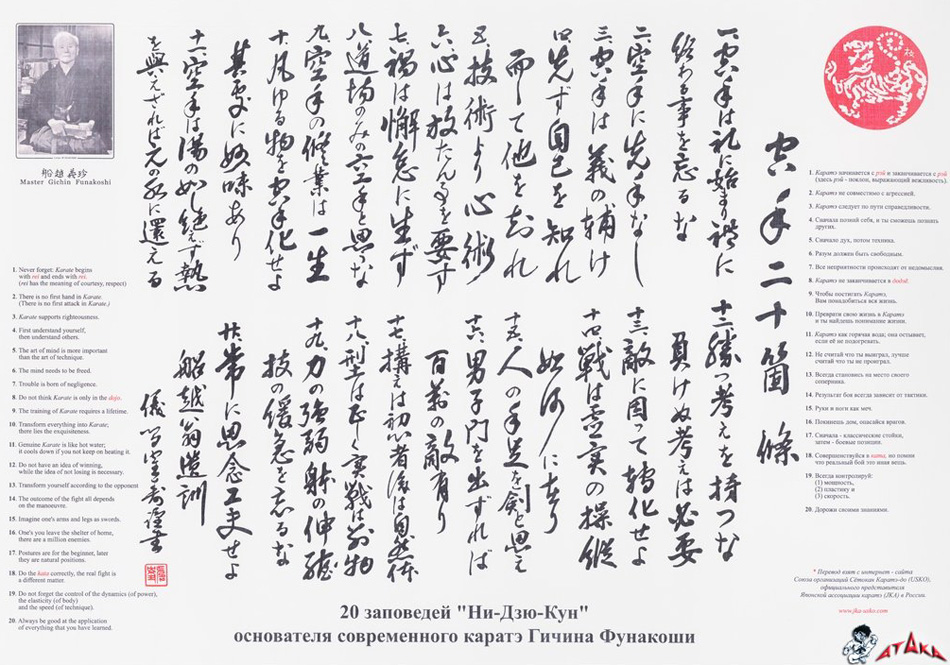 空手二十箇條
一、空手は礼に始まり禮に
終わる事を忘るな
二、空手に先手なし
三、空手は義の輔け
四、先ず自己を知れ
而して他を知れ
五、技術より心術
六、心は放たん事を要す
七、禍は懈怠に生ず
八、道場のみの空手と思うな
九、空手の修業は一生
十、凡ゆる物を空手化せよ
其処に妙味あり
十一、空手は湯の如し絶えず熱
を與えざれば元の水に還える
十二、勝つ考えを持つな
負けぬ考えは必要
十三、敵に因って轉化せよ
十四、戦は虚実の操縦
如何に在り
十五、人の手足を剣と思え
十六、男子門を出ずれば
百萬の敵有り
十七、構えは初心者後は自然体
十八、型は正しく実戦は別物
十九、力の強弱体の伸縮
技の緩急を忘るな
廿、常に思念工夫せよ
船越翁遺訓
船越義珍
Master Gichin Funakoshi
1. Never forget: Karate begins
with rei and ends with rei.
(rei has the meaning of courtesy, respect)
2. There is no first hand in Karate.
(There is no first attack in Karate.)
3. Karate supports righteousness.
4. First understand yourself,
then understand others.
5. The art of mind is more important
than the art of technique.
6. The mind needs to be freed.
7. Trouble is born of negligence.
8. Do not think Karate is only in the dojo.
9. The training of Karate requires a lifetime.
10. Transform everything into Karate;
there lies the exquisiteness.
11. Genuine Karate is like hot water;
it cools down if you not keep on heating it.
12. Do not have an idea of winning,
while the idea of not losing is necessary.
13. Transform yourself according to the opponent
14. The outcome of the fight all depends
on the manoeuvre.
15. Imagine one's arms and legs as swords.
16. One's you leave the shelter of home,
there are a million enemies.
17. Postures are for the beginner, later
they are natural positions.
18. Do the kata correctly, the real fight is
a different matter.
19. Do not forget the control of the dynamics (of power),
the elasticity (of body)
and the speed (of technique).
20. Always be good at the application
of everything that you have learned.
1. Каратэ начинается с рэй и заканчивается с рэй
(здесь рэй - поклон, выражающий вежливость).
2. Каратэ не совместимо с агрессией.
3. Каратэ следует по пути справедливости.
4. Сначала познай себя, и ты сможешь познать
других.
5. Сначало дух, потом техника.
6. Разум должен быть свободным.
7. Все неприятности происходят от недомыслия.
8. Каратэ не заканчивается в додзё.
9. Чтобы постигать Каратэ,
Вам понадобиться вся жизнь.
10. Преврати свою жизнь в Каратэ
и ты найдешь понимание жизни.
11. Каратэ как горячая вода; она остывает,
если её не подогревать.
12. Не считай что ты выиграл, лучше
считай что ты не проиграл.
13. Всегда становись на место своего
соперника.
14. Результат боя всегда зависит от тактики.
15. Руки и ноги как меч.
16. Покинешь дом, опасайся врагов.
17. Сначала - классические стойки,
затем - боевые позиции.
18. Совершенствуйся в ката, но помни
что реальный бой это иная вещь.
19. Всегда контролируй:
(1) мощность,
(2) пластику и
(3) скорость.
20. Дорожи своими знаниями.
* Перевод взят с интернет - сайта
Союза организаций Сётокан Каратэ-до (USKO),
официального представителя
Японской ассоциации каратэ (JKA) в России.
www.jka-usko.com
20 заповедей "Ни-Дзю-Кун"
основателя современного каратэ Гичина Фунакоши
ATAKA